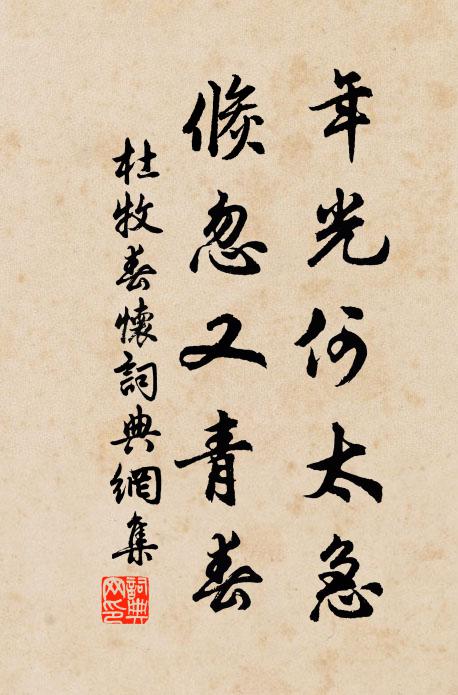 年光何太急
倐忽又青春
杜牧春懷詞典網集
詞典網印